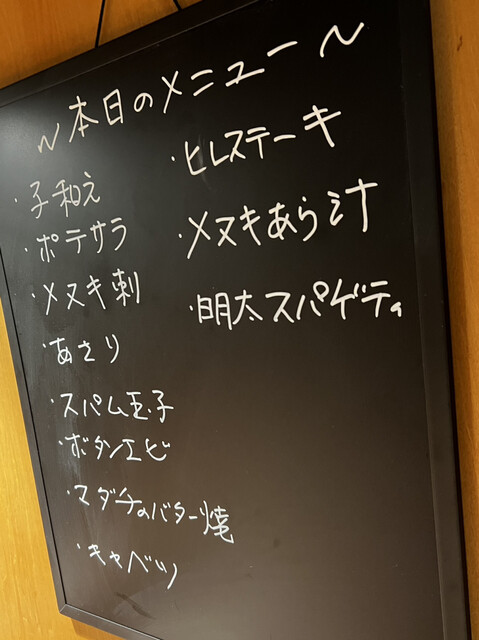 ~本日のメニュー~
・子和え
・ポテサラ
・メヌキ刺
・あさり
・スパム玉子
・ボタンエビ
・マダチのバター焼
・キャベツ
・ヒレステーキ
・メヌキあら汁
・明太スパゲティ